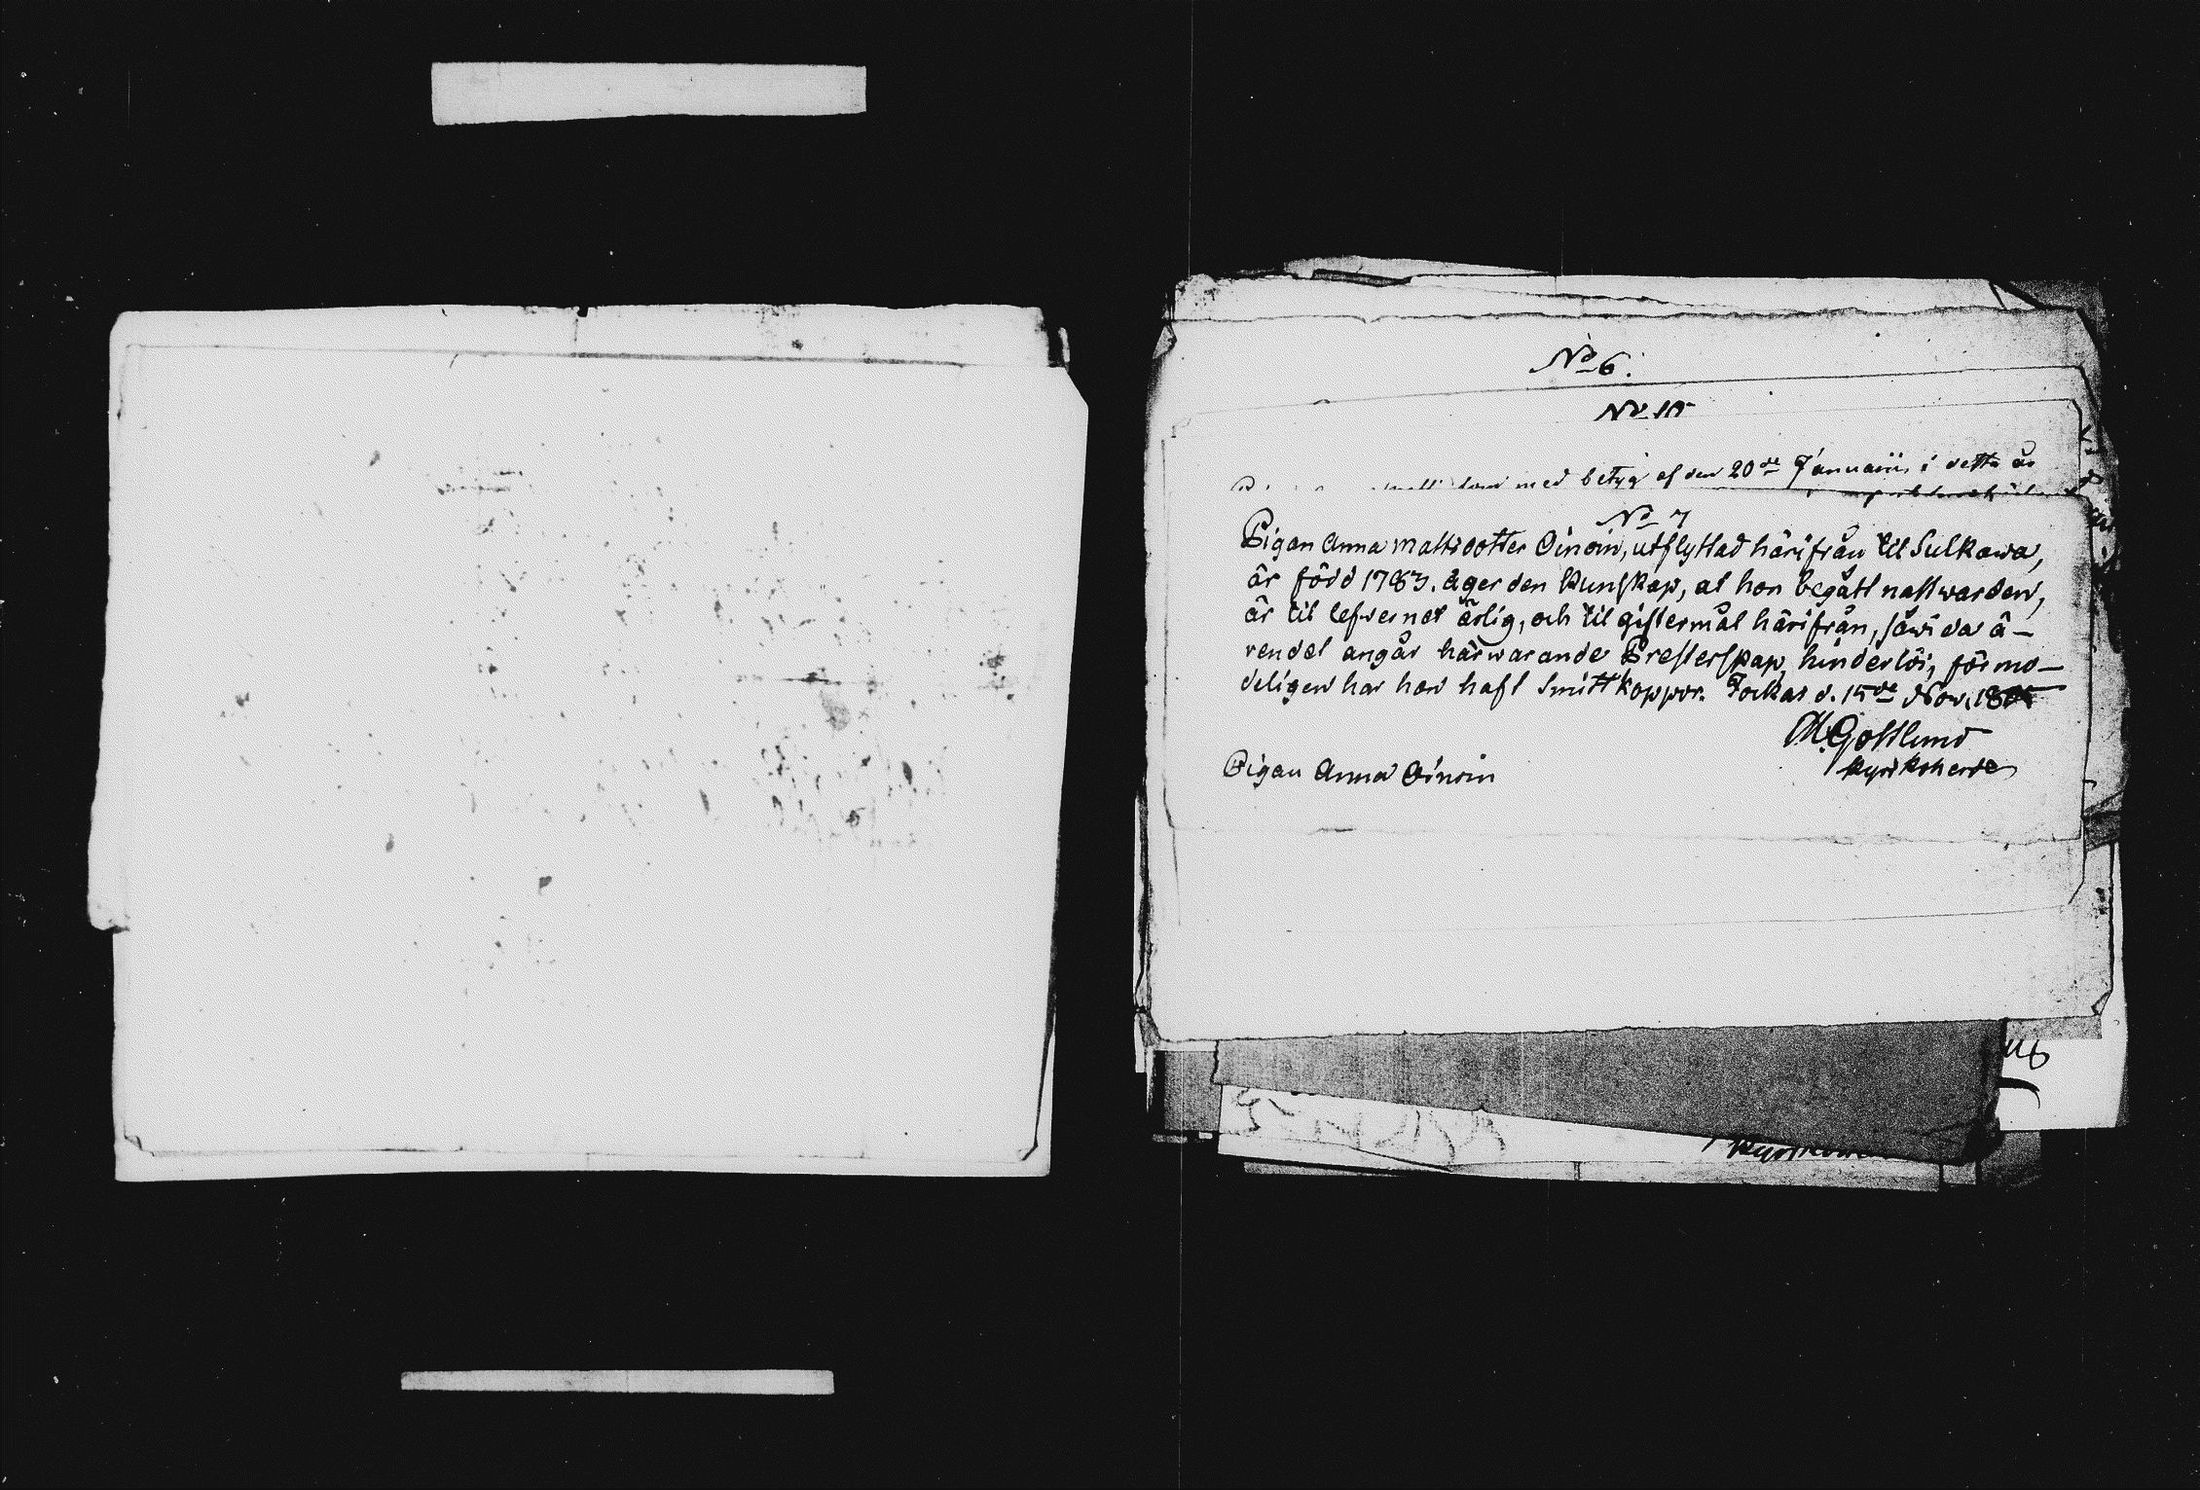 No 6.
No 10
med betyg af den 20de Januarii i detta år
No 7
Pigan Anna Mattsdotter Oinoin, utflyttad härifrån til Sulkawa,
är född 1783. äger den kunskap, at hon begått nattwarden,
är til lefwernet ärlig, och til giftermål härifrån, såwida ä-
rendet angår härwarande Presterskap, hinderlös, förmo-
deligen har hon haft Smittkoppor. Jockas d. 15de Nov. 1805
M. Gottlund
Kyrkoherde
Pigan Anna Oinoin